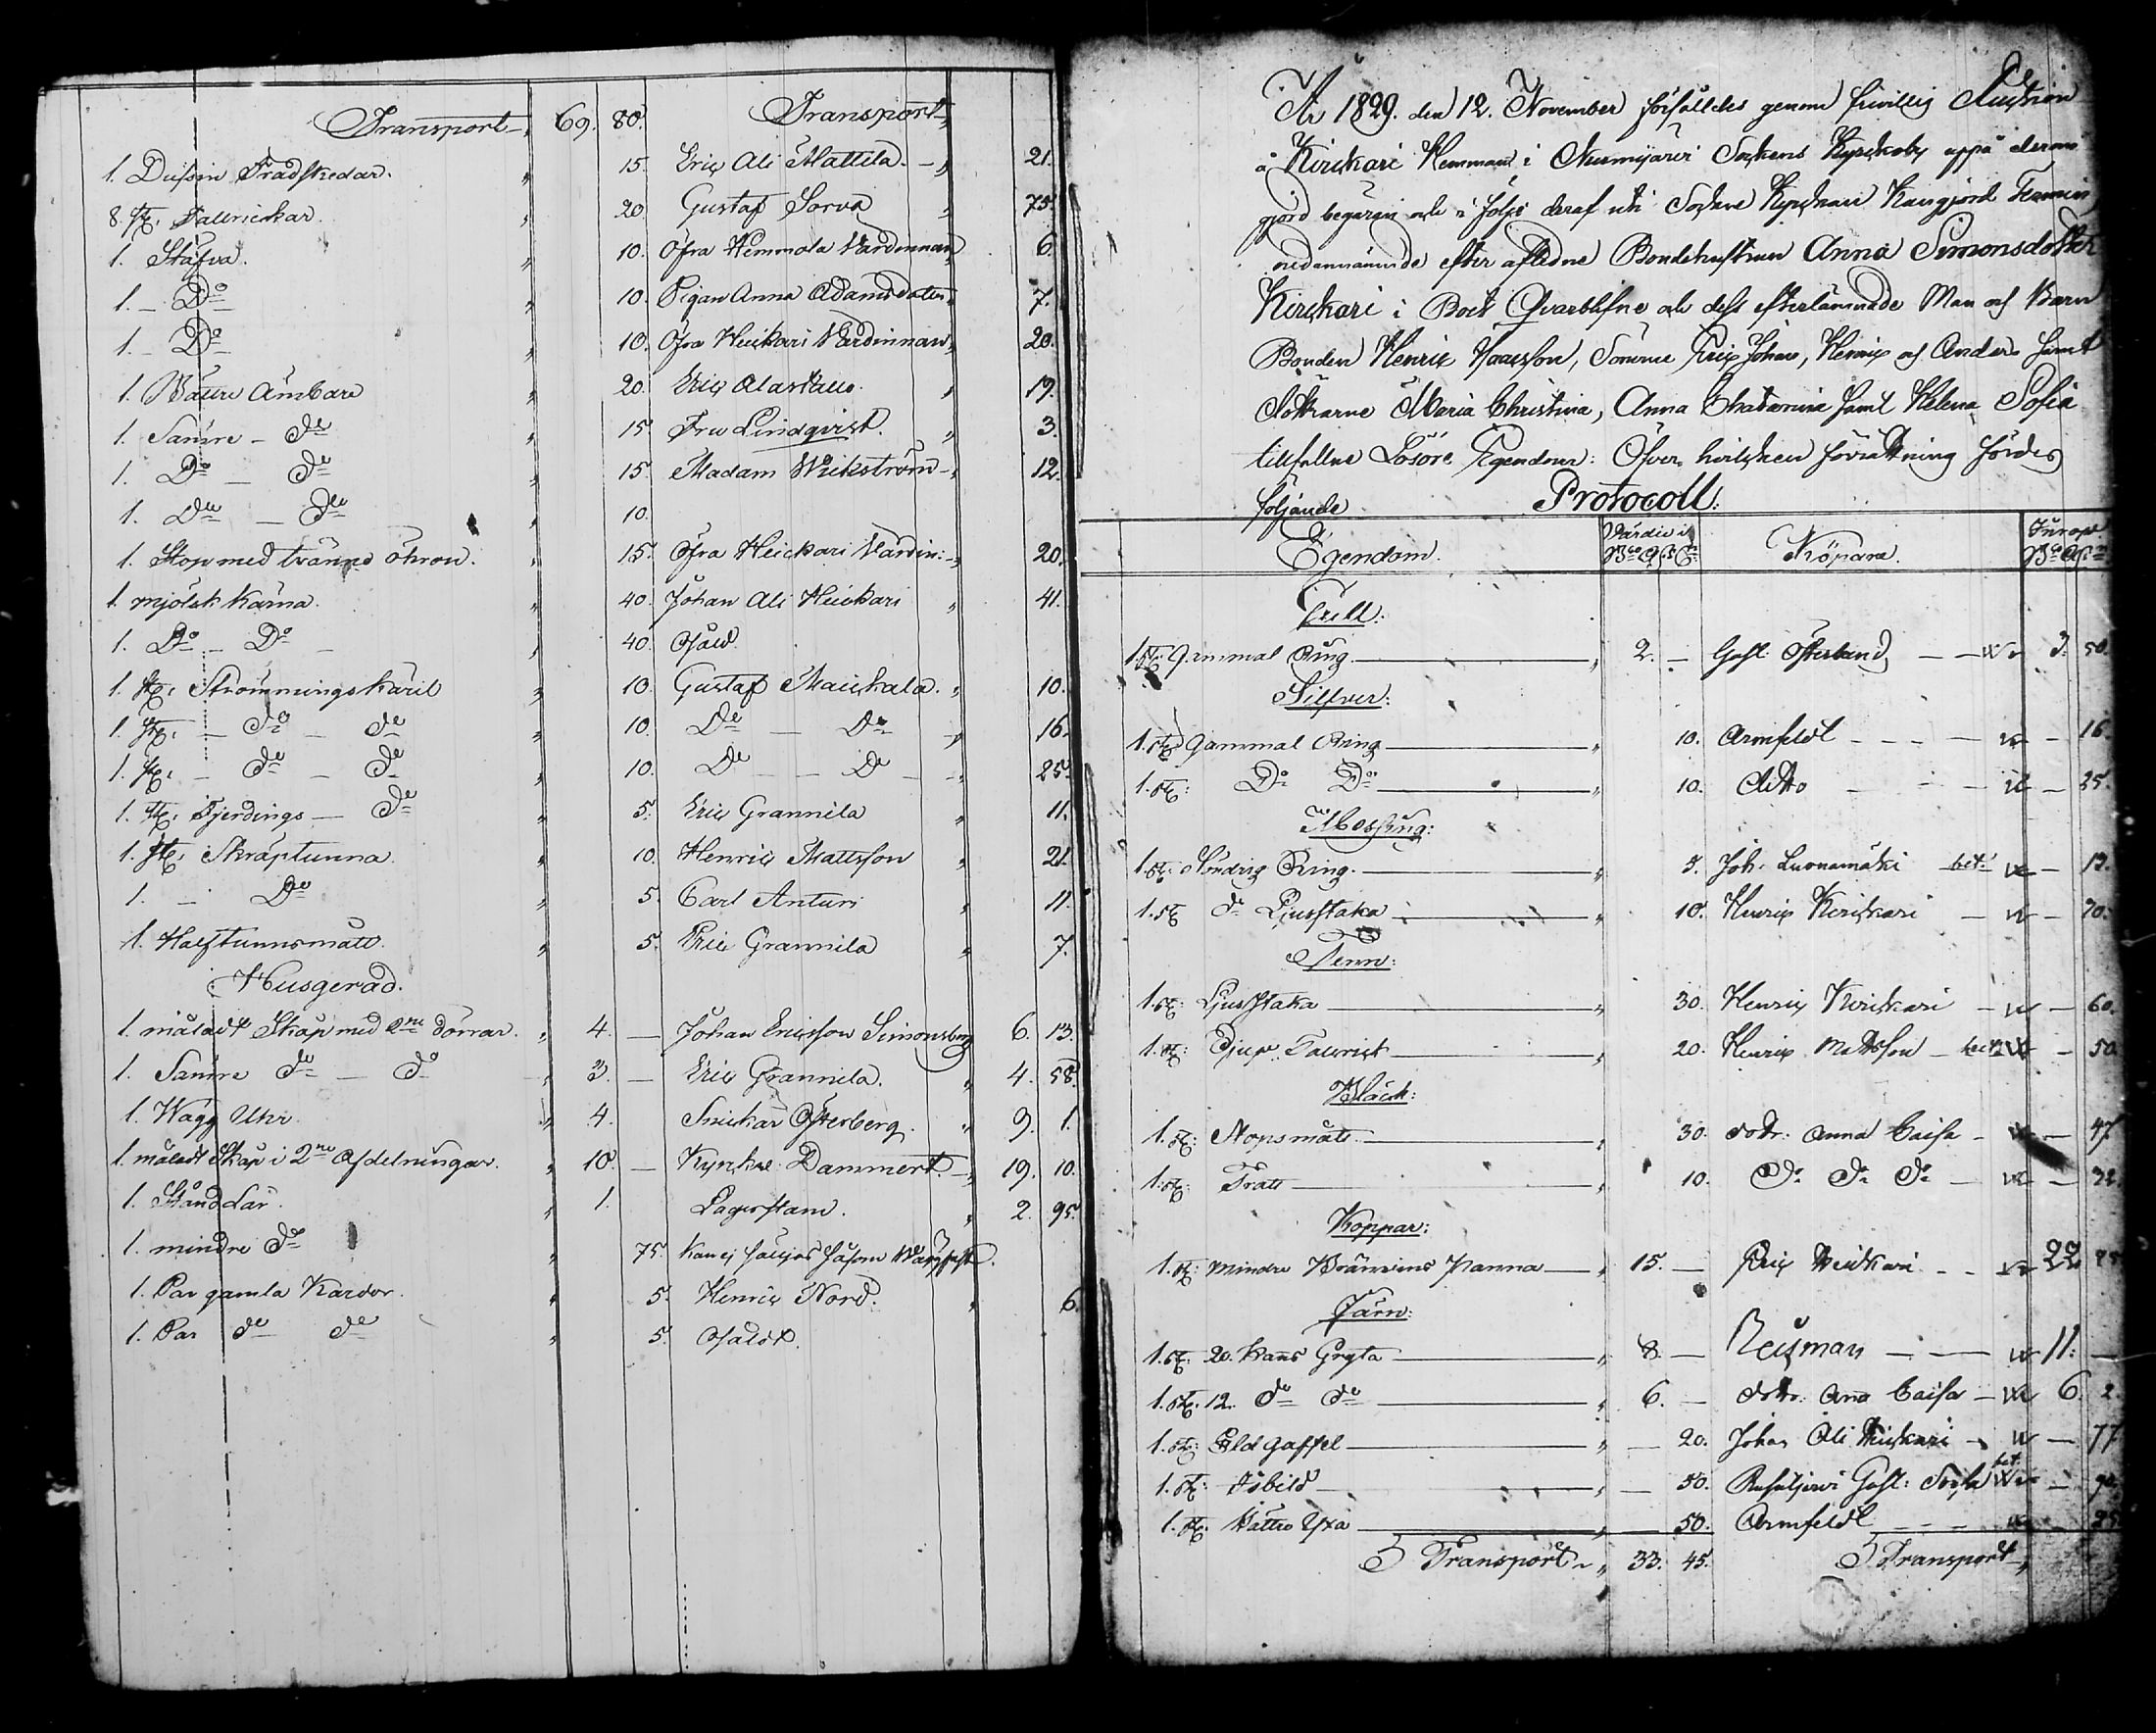 Transport 69. 80. Transport
1. Dussin Trädskedar. 15. Eric Ali Mattila. 21.
8. st. Tallrickar. 20. Gustaf Sorva 75.
1. Stäfva. 10. Öfra Hemmola Värdinnan 6.
1. Do 10. Pigan Anna Adamsdotter 7.
1. Do 10. Öfra Heickari Värdinnan 20.
1. Ämbare 20. Eric Alastalo. 19.
1. Sämre de 15. Fru Lindqvist. 3.
1. Do de 15. Madam Wickström 12.
1. Do de 10.
1. Stop med tvänne öhron. 15. Öfra Heickari Värdin: 20.
1. mjölck kärna. 40. Johan Ali Heickari 41.
1. Do Do 40. Osåld
1. st. Strömmingskäril 10. Gustaf Maickala. 10.
1. st. do de 10. De De 16.
1. st. de de 10. De De 25.
1. st. Fjerdings de 5. Eric Grannila 11.
1. st. Skräptunna 10. Henric Mattsson 21.
1. Do 5. Carl Anturi 11.
1. Halftunnsmått. 5. Eric Grannila 7.
Husgeråd.
1. måladt Skåp med 2ne dörrar. 4. Johan Ericsson Simonsberg 6. 13.
1. Sämre de do 3. Eric Grannila. 4. 58.
1. Wägg Uhr 4. Snickar Österberg. 9. 1.
1. måladt Skåp i 2ne Afdelningar. 10. Dammert 19. 10.
1. Stånd Lår. 1. Lagerstam. 2. 95.
1. mindre de 75. Kan ej säljas såsom Wäggfast.
1. Par gamla Kardor. 5. Henric Nord. 6.
1. Par de de 5. Osåldt.
År 1829. den 12. November förfälldes genom frivillig Auction
å Kirckari Hemman i Nurmijärvi Sockens Kyrckoby uppå derom
gjord begäran och i följe deraf uti Sockne Kyrckan Kungjord Termin
nedannämnde efter aflidne Bondehustrun Anna Simonsdotter
Kirckari i Boet Qvarblifne och dess efterlämnade Man och Barn
Bonden Henric Isacsson, Sönerne Eric Johan, Henric och Anders samt
döttrarne Maria Christina, Anna Chatarina samt Helena Sofia
tillfallne Lösöre Egendom: Öfver hvilcken förrättning fördes
följande Protocoll:
Egendom. Värdie i Köpare. Inrop
Gull:
1. st. gammal Ring 2. Gust: Österlund 3. 50.
Silfver:
1. st. gammal Ring 10. Armfeldt 16.
1. st: Do Do 10. Ditto 25.
Messing:
1. st: Söndrig Ring. 5. Joh: Luonamäki bet: 13.
1. st de Ljusstaka 10. Henric Kirckari 70.
Tenn:
1. st: Ljusstaka 30. Henric Kirckari 60.
1. st: Djup Tallrick 20. Henric Mattsson bet: 50
Bläck:
1. st: Stopsmått 30. dotr: Anna Caisa 47
1. st: Tratt 10. De De De 32.
Koppar:
1. st: mindre Brännvins Panna 15. Eric Heickari 22
Järn:
1. st: 20. Kans Gryta 8. Reisman 11:
1. st: 12. de de 6. dottr: Ana Caisa 6. 2.
1. st: Eld gaffel 20. Johan Ali Heickari 77
1. st: Isbild 50. Gust: bet: 90.
1. st: Bättre Yxa 50. Armfeldt 25.
Transport 33. 45. Transport